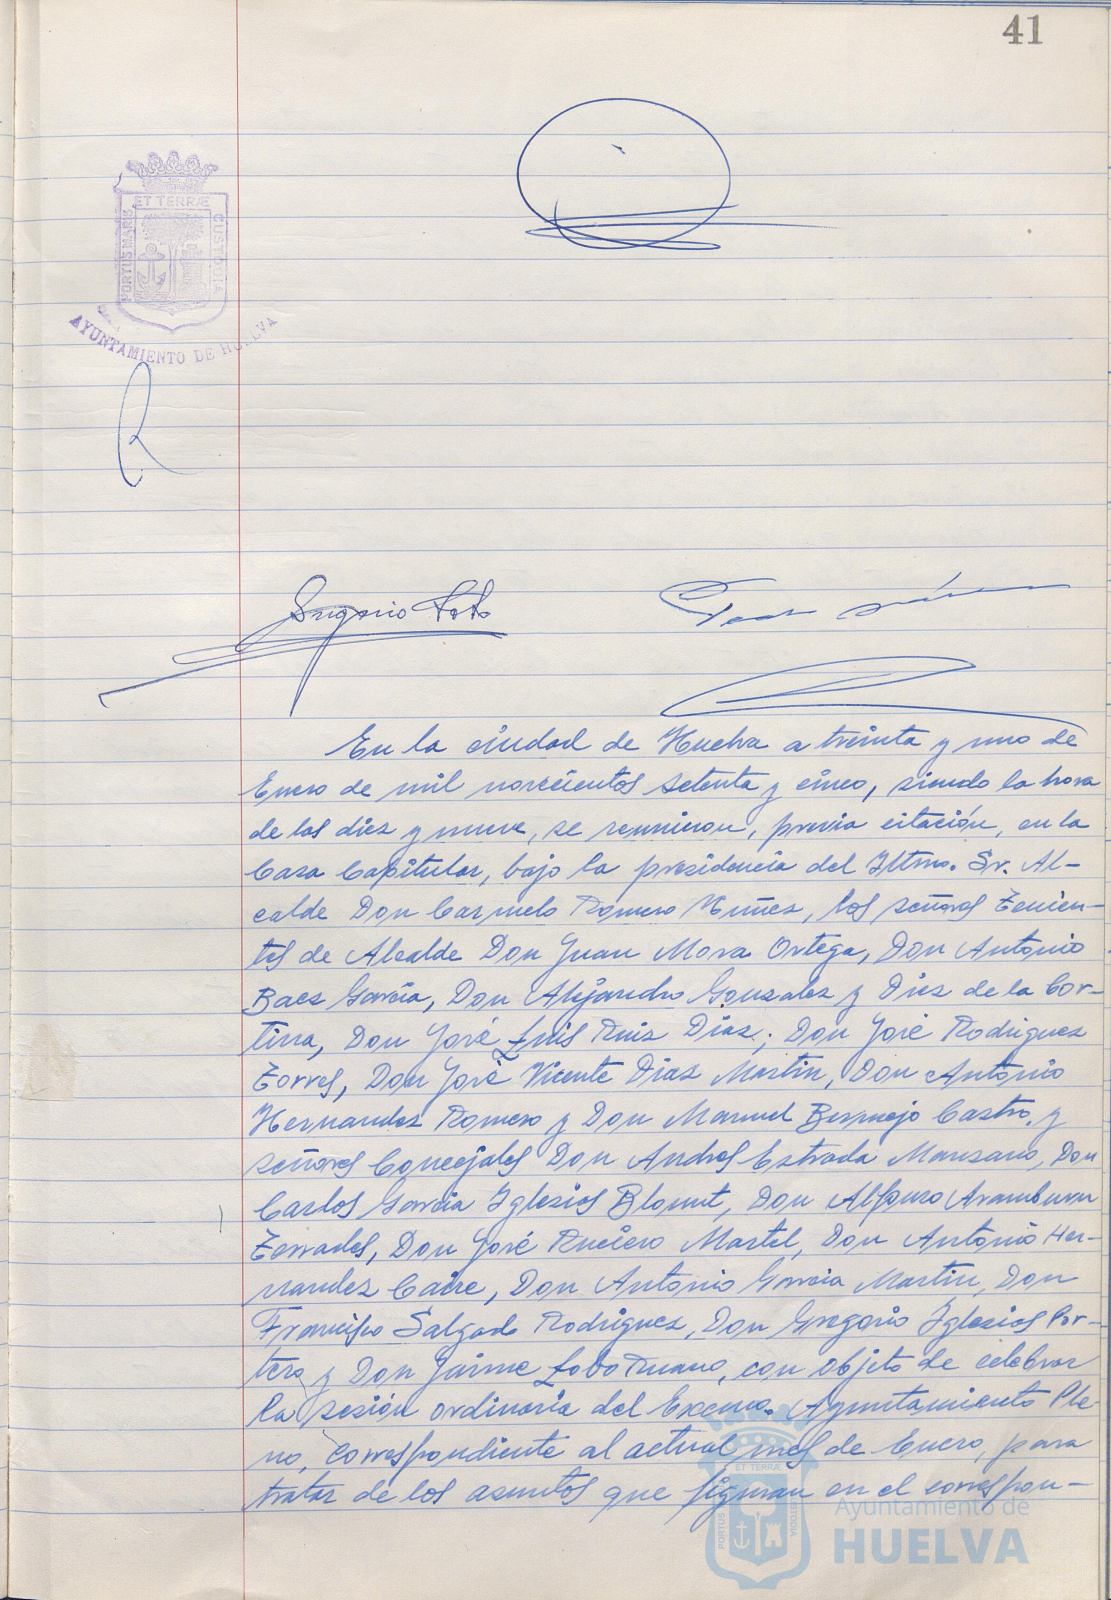 41
ET TERRÆ
PORTUS MARIS
CUSTODIA
AYUNTAMIENTO DE HUELVA
En la ciudad de Huelva a treinta y uno de
Enero de mil novecientos setenta y cinco, siendo la hora
de las diez y nueve, se reunieron, previa citación, en la
Casa Capitular, bajo la presidencia del Iltmo. Sr. Al-
calde Don Carmelo Romero Nuñez, los señores Tenien-
tes de Alcalde Don Juan Mora Ortega, Don Antonio
Baez García, Don Alejandro Gonzalez y Diez de la Cor-
tina, Don José Luis Ruiz Díaz; Don José Rodriguez
Torres, Don José Vicente Diaz Martin, Don Antonio
Hernandez Romero y Don Manuel Bermejo Castro, y
señores Concejales Don Andres Estrada Manzano, Don
Carlos García Iglesias Blount, Don Alfonso Aramburu
Terrades, Don José Ruciero Martel, Don Antonio Her-
nandez Caire, Don Antonio Garcia Martin, Don
Francisco Salgado Rodriguez, Don Gregorio Iglesias Por-
tero y Don Jaime Lobo Ruano, con objeto de celebrar
la sesión ordinaria del Excmo. Ayuntamiento Ple-
no, correspondiente al actual mes de Enero, para
tratar de los asuntos que figuran en el correspon-
ET TERRÆ
PORTUS
CUSTODIA
Ayuntamiento de
HUELVA